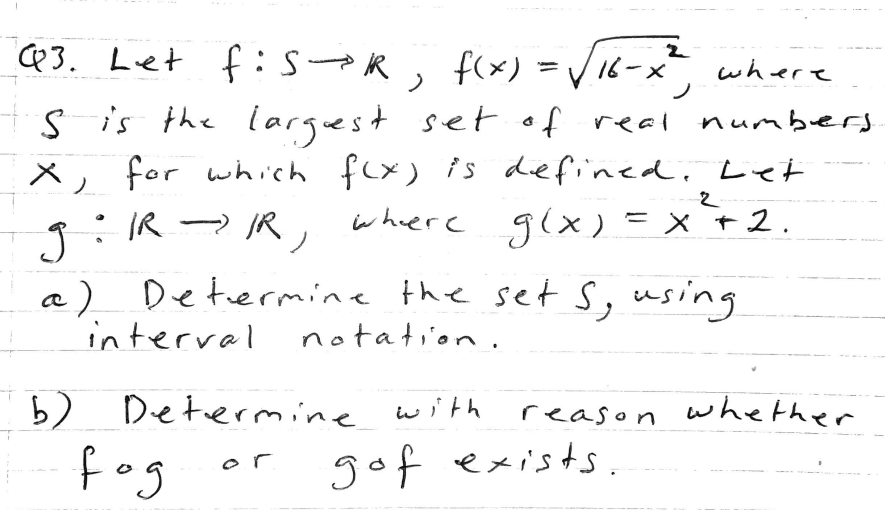 Q3. Let f: S → ℝ, f(x) = √(16-x²), where
S is the largest set of real numbers
x, for which f(x) is defined. Let
g: ℝ → ℝ, where g(x) = x² + 2.
a) Determine the set S, using
interval notation.
b) Determine with reason whether
fog or gof exists.